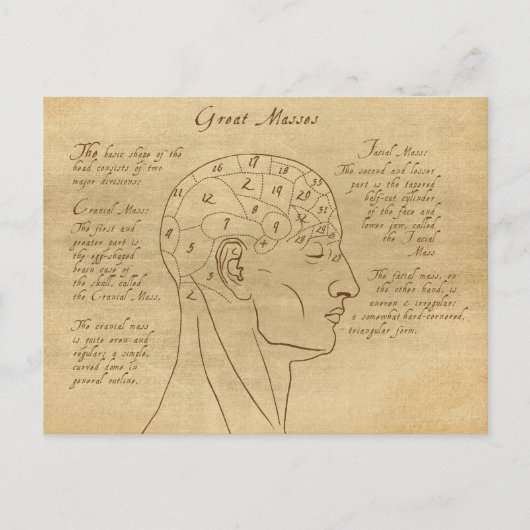 Great Masses
The basic shape of the
head consists of two
major divisions:
Cranial Mass:
The first and
greater part is
the egg-shaped
brain case of
the skull, called
the Cranial Mass.
The cranial mass
is quite even and
regular; a simple,
curved dome in
general outline.
Facial Mass:
The second and lesser
part is the tapered
half-cut cylinder
of the face and
lower jaw, called
the Facial
Mass
The facial mass, on
the other hand, is
uneven & irregular:
a somewhat hard-cornered,
triangular form.
16
17
18
11
12
2
14
4
7
9
5
3
2